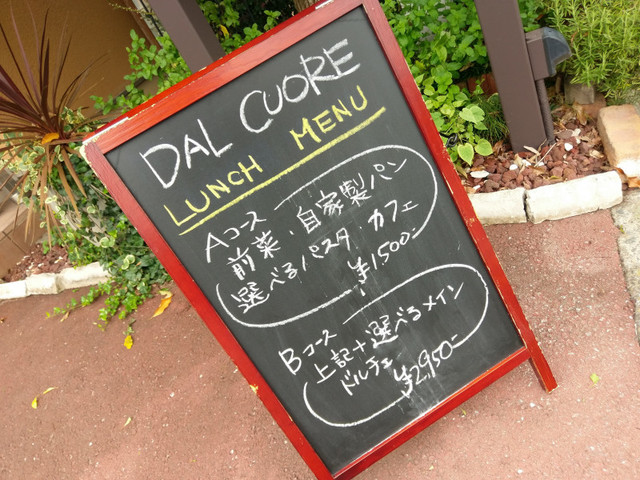 DAL CUORE
LUNCH MENU
Aコース
前菜・自家製パン
選べるパスタ・カフェ
¥1,500-
Bコース
上記+選べるメイン
ドルチェ
¥2,950-